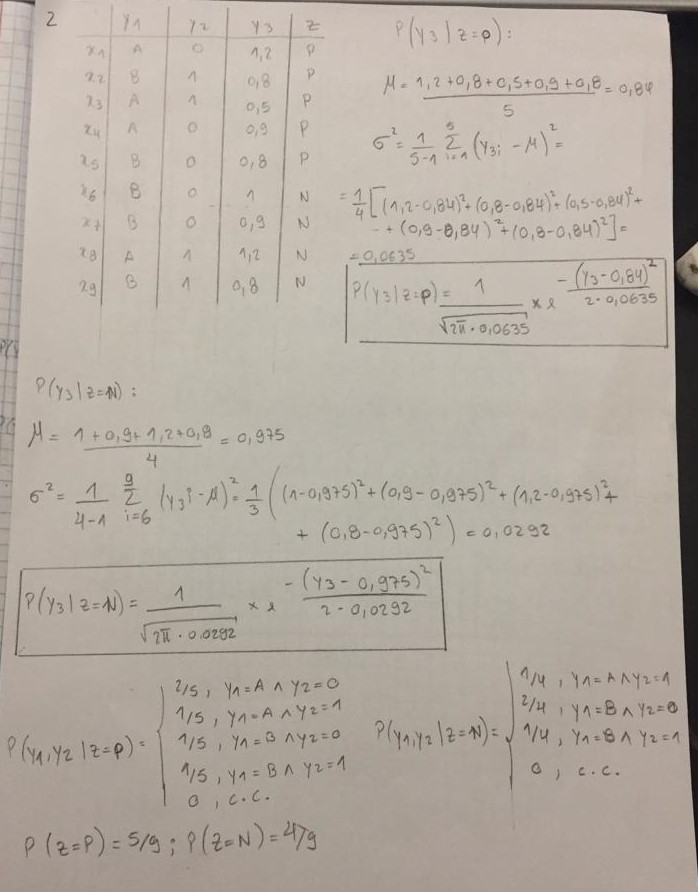 2
y1 y2 y3 z
x1 A 0 1,2 P
x2 B 1 0,8 P
x3 A 1 0,5 P
x4 A 0 0,9 P
x5 B 0 0,8 P
x6 B 0 1 N
x7 B 0 0,9 N
x8 A 1 1,2 N
x9 B 1 0,8 N
P(y3|z=P):
μ = (1,2+0,8+0,5+0,9+0,8)/5 = 0,84
σ² = 1/(5-1) Σ_{i=1}^{5} (y3i - μ)² =
= 1/4 [(1,2-0,84)² + (0,8-0,84)² + (0,5-0,84)² +
+ (0,9-0,84)² + (0,8-0,84)²] =
= 0,0635
P(y3|z=P) = 1/√(2π · 0,0635) × e^(-(y3-0,84)²/(2·0,0635))
P(y3|z=N):
μ = (1+0,9+1,2+0,8)/4 = 0,975
σ² = 1/(4-1) Σ_{i=6}^{9} (y3i - μ)² = 1/3 ((1-0,975)² + (0,9-0,975)² + (1,2-0,975)² +
+ (0,8-0,975)²) = 0,0292
P(y3|z=N) = 1/√(2π · 0,0292) × e^(-(y3-0,975)²/(2·0,0292))
P(y1,y2|z=P) =
2/5, y1=A ∧ y2=0
1/5, y1=A ∧ y2=1
1/5, y1=B ∧ y2=0
1/5, y1=B ∧ y2=1
0, c.c.
P(y1,y2|z=N) =
1/4, y1=A ∧ y2=1
2/4, y1=B ∧ y2=0
1/4, y1=B ∧ y2=1
0, c.c.
P(z=P) = 5/9; P(z=N) = 4/9